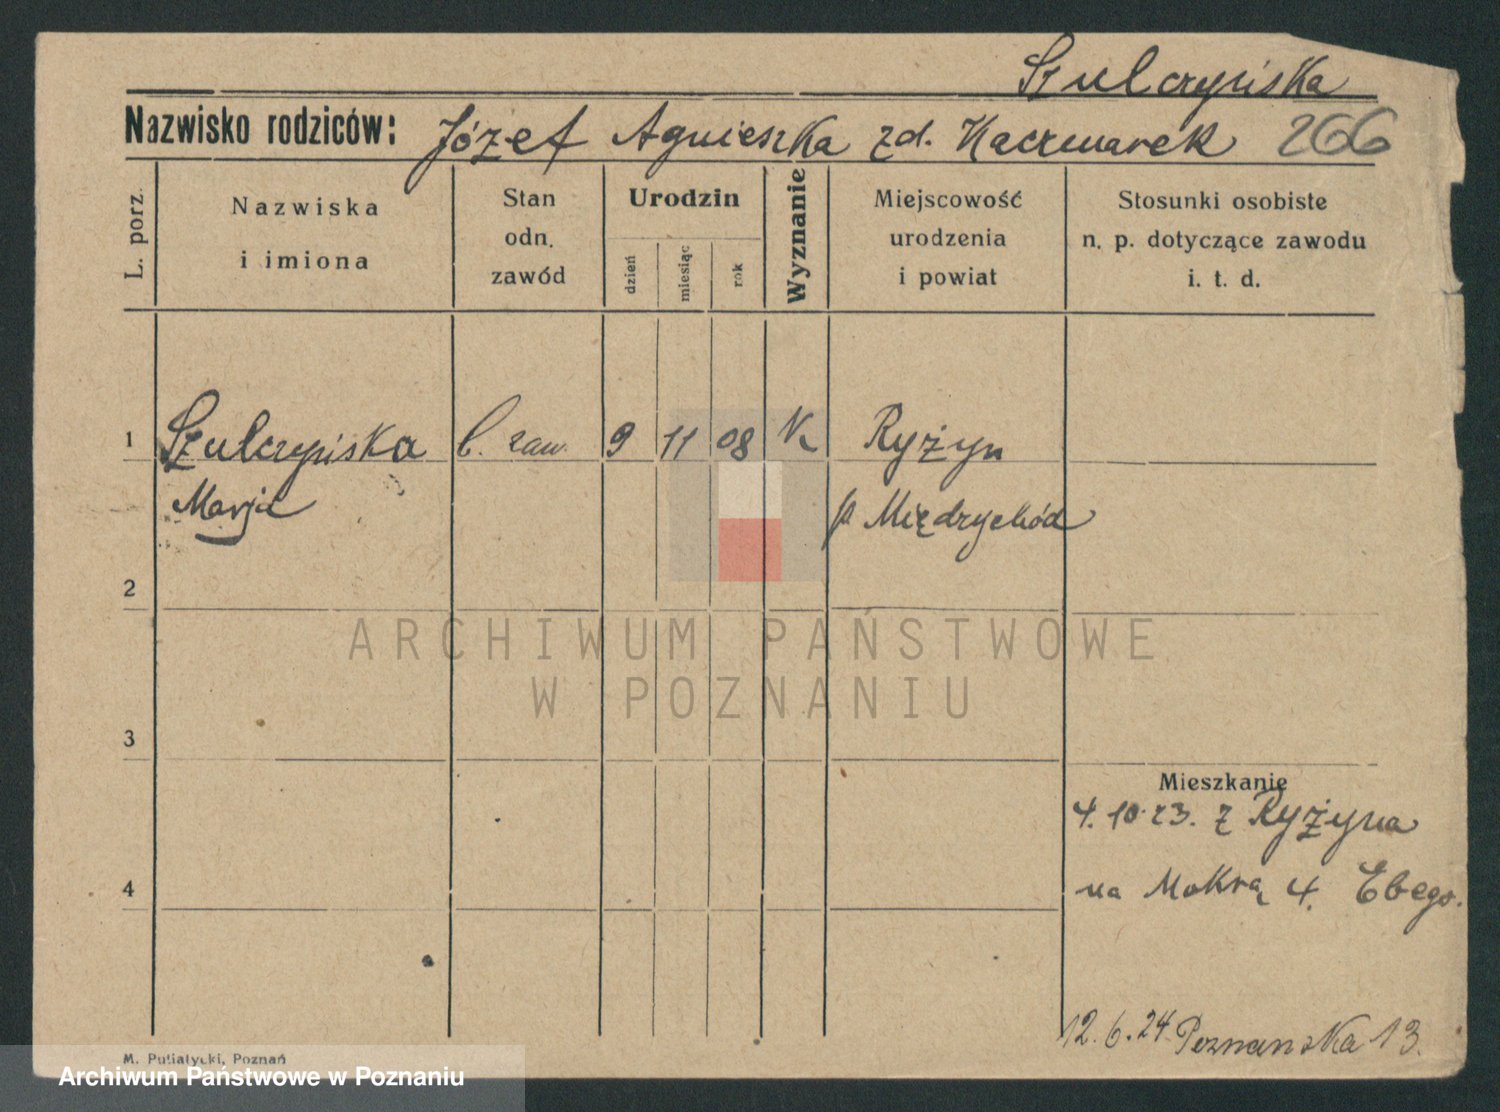 Szulczyńska
Nazwisko rodziców: Józef Agnieszka zd. Kaczmarek 266
L. porz.
Nazwiska
i imiona
Stan
odn.
zawód
Urodzin
dzień
miesiąc
rok
Wyznanie
Miejscowość
urodzenia
i powiat
Stosunki osobiste
n. p. dotyczące zawodu
i. t. d.
1 Szulczyńska b. zaw. 9 11 08 K Ryżyn
Marja p Międzychód
2
ARCHIWUM PAŃSTWOWE
W POZNANIU
3
Mieszkanie
4. 10. 23. z Ryżyna
4 na Mokrą 4. Ebego.
12. 6. 24 Poznanska 13.
M. Putiatycki, Poznań
Archiwum Państwowe w Poznaniu